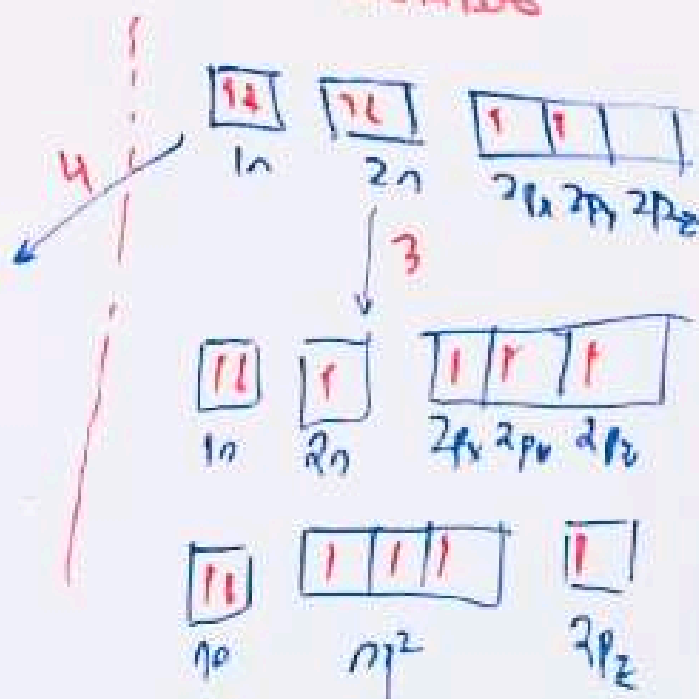 4
1s 2s
2px 2py 2pz
3
1s 2s 2px 2py 2pz
sp² 2pz